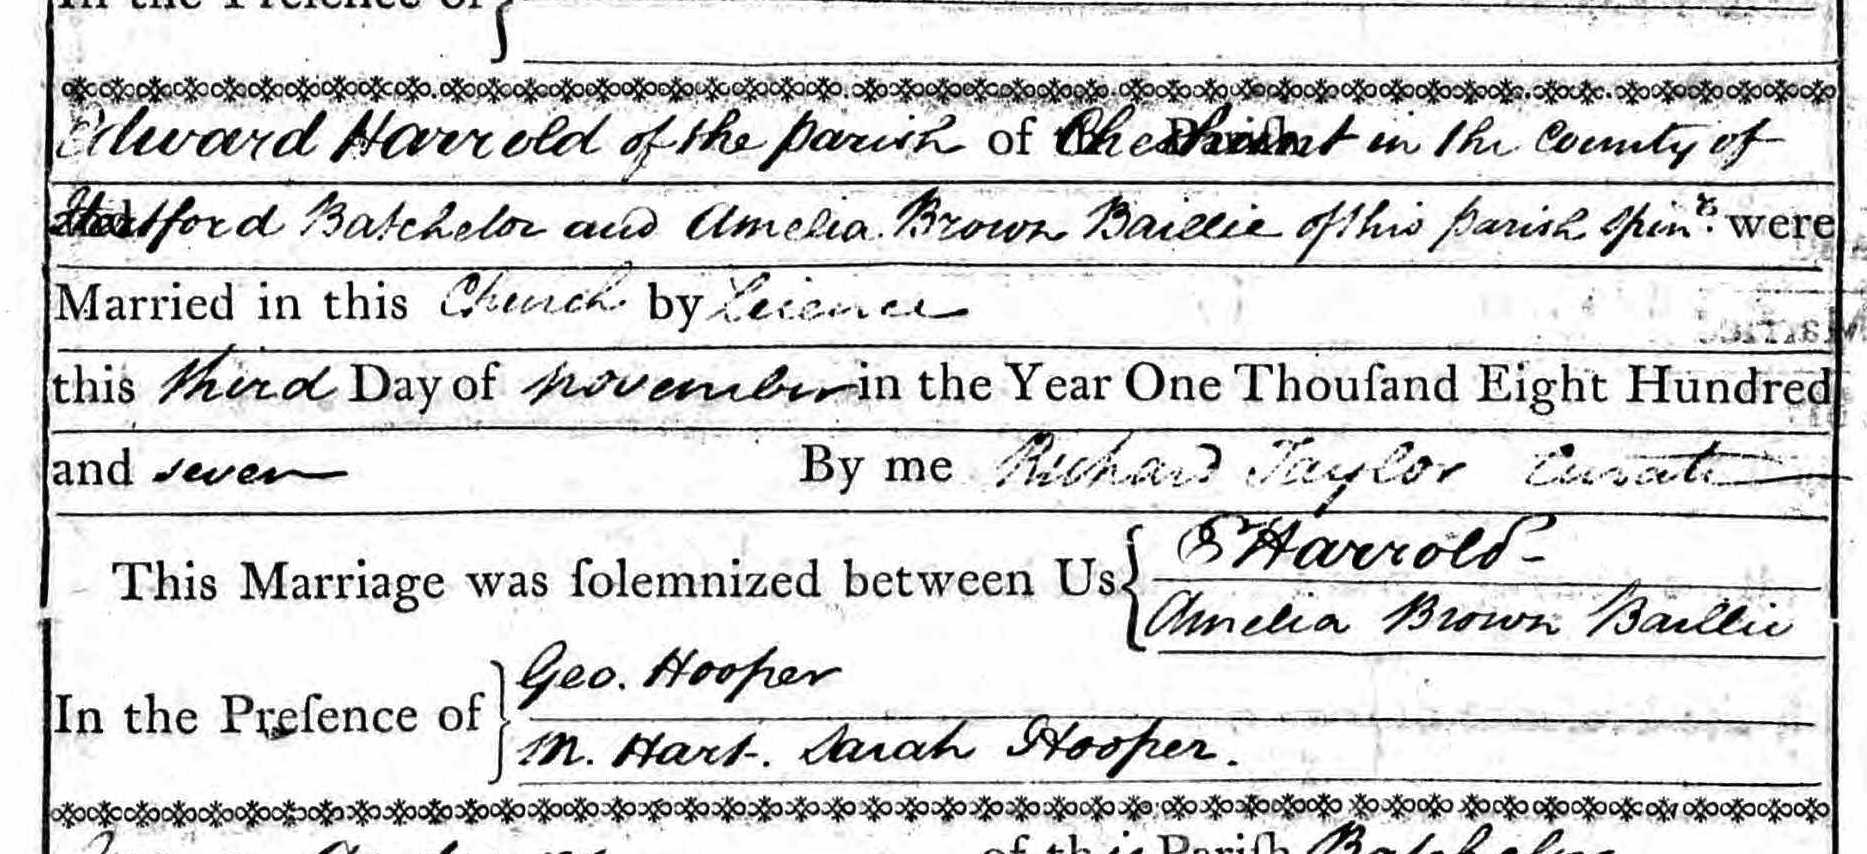 In the Preſence of
Edward Harrold of the parish of Cheshunt in the County of
Hertford Batchelor and Amelia Brown Baillie of this parish Spinr. were
Married in this Church by Licence
this third Day of november in the Year One Thouſand Eight Hundred
and seven By me Richard Taylor Curate
This Marriage was ſolemnized between Us E Harrold
Amelia Brown Baillie
In the Preſence of Geo. Hooper
M. Hart. Sarah Hooper.
of this Pariſh Batchelor